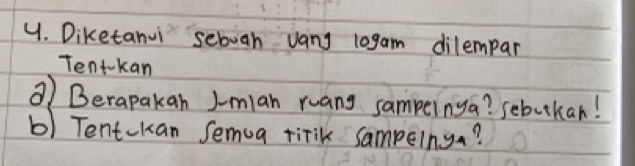 4. Diketahui sebuah uang logam dilempar
Tentukan
a) Berapakah Jumlah ruang sampelnya? sebutkan!
b) Tentukan semua titik sampelnya?